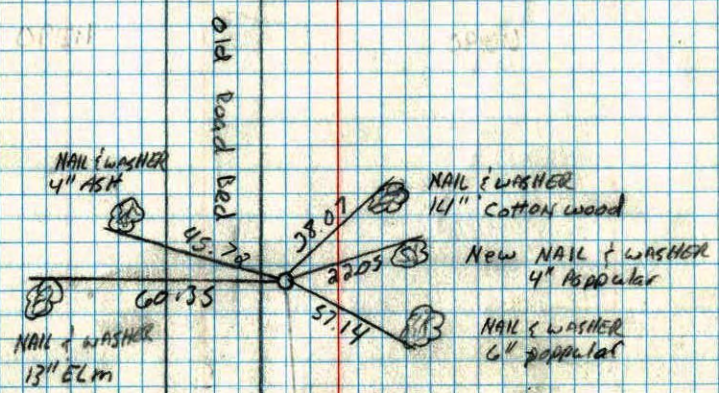 Old Road Bed
NAIL & WASHER
4" ASH
45.78
60.35
NAIL & WASHER
13" ELM
38.07
NAIL & WASHER
14" Cotton wood
22.05
New NAIL & WASHER
4" Poppular
57.14
NAIL & WASHER
6" poppular